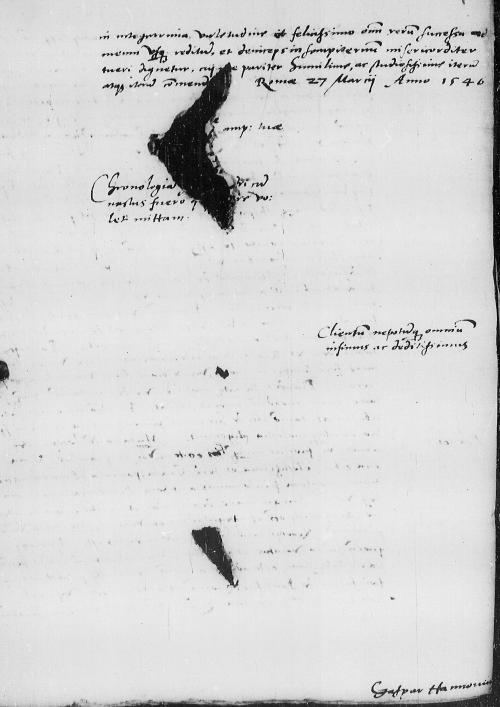 in integerrima valetudine et felicissimo omĩ rerũ successu ad
meum usq̃ reditũ, et deinceps in sempiternũ misericorditer
tueri dignetur, cui me pariter humilime, ac studiosissime iterũ
atq̃ iterũ cõmend Romae 27 Marcij Anno 1546
amp: tuae
Chronologia
nactus fuero vo:
let mittam.
Clientũ nepotũq̃ omniũ
infimus ac deditissimus
Caspar Hannoniu